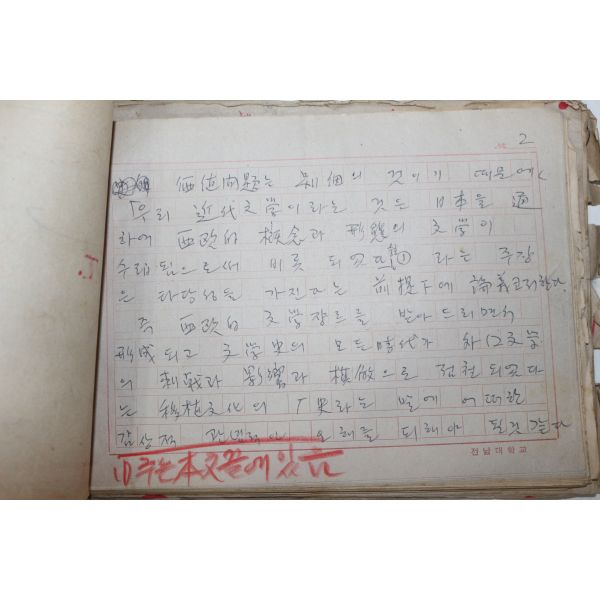 2
價値問題는 別個의 것이기 때문에
「우리 近代文學이라는 것은 日本을 通
하여 西歐的 槪念과 形態의 文學이
수립됨으로써 비롯 되고 ① 라는 주장
은 타당성을 가진다는 前提下에 論議코저한다.
즉 西歐的 文學장르를 받아 드리면서
形成되고 文學史의 모든 時代가 외국文學
의 刺戟과 影響과 模倣으로 점철 되었다
는 移植文化의 史라는 말에 어떠한
감상적 오해를 되 될것 같다
전남대학교
1) 주는 本文끝에 있음